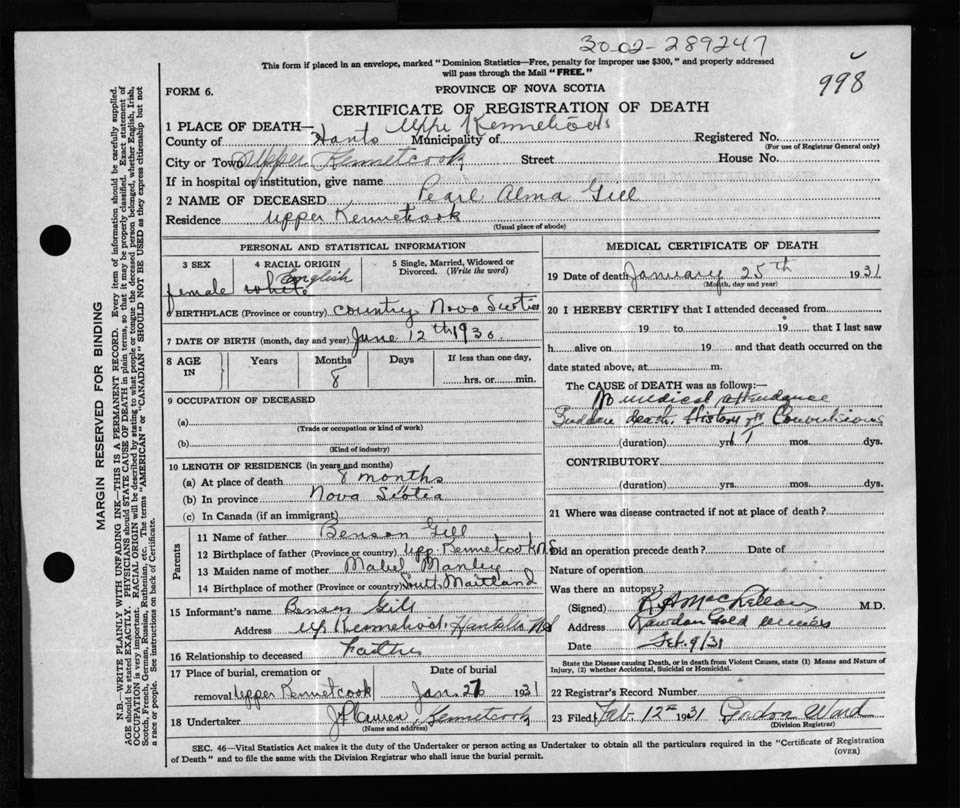 30-02-289247
998
This form if placed in an envelope, marked "Dominion Statistics—Free, penalty for improper use $300," and properly addressed
will pass through the Mail "FREE."
FORM 6.
PROVINCE OF NOVA SCOTIA
CERTIFICATE OF REGISTRATION OF DEATH
1 PLACE OF DEATH—
County of Hants Municipality of Registered No.
(For use of Registrar General only)
City or Town Upper Kennetcook Street House No.
If in hospital or institution, give name
2 NAME OF DECEASED Pearl Alma Gill
Residence Upper Kennetcook
(Usual place of abode)
PERSONAL AND STATISTICAL INFORMATION
3 SEX 4 RACIAL ORIGIN 5 Single, Married, Widowed or
Divorced. (Write the word)
English
female white
6 BIRTHPLACE (Province or country) country Nova Scotia
7 DATE OF BIRTH (month, day and year) June 12th 1930
8 AGE IN Years Months Days If less than one day,
8 hrs. or min.
9 OCCUPATION OF DECEASED
(a)
(Trade or occupation or kind of work)
(b)
(Kind of industry)
10 LENGTH OF RESIDENCE (in years and months)
(a) At place of death 8 months
(b) In province Nova Scotia
(c) In Canada (if an immigrant)
Parents
11 Name of father Benson Gill
12 Birthplace of father (Province or country) Upp. Kennetcook N.S
13 Maiden name of mother Mabel Manley
14 Birthplace of mother (Province or country) South Maitland
15 Informant's name Benson Gill
Address Up Kennetcook Hants Co N.S
16 Relationship to deceased Father
17 Place of burial, cremation or Date of burial
removal Upper Kennetcook Jan. 26 1931
18 Undertaker Kennetcook
(Name and address)
MEDICAL CERTIFICATE OF DEATH
19 Date of death January 25th 1931
(Month, day and year)
20 I HEREBY CERTIFY that I attended deceased from
19 to 19 that I last saw
h alive on 19 and that death occurred on the
date stated above, at m.
The CAUSE of DEATH was as follows:—
No medical attendance
Sudden death. History of Convulsions
(duration) yrs. mos. dys.
CONTRIBUTORY
(duration) yrs. mos. dys.
21 Where was disease contracted if not at place of death?
Did an operation precede death? Date of
Nature of operation
Was there an autopsy?
(Signed) M.D.
Address Rawdon Gold
Date Feb. 9/31
State the Disease causing Death, or in death from Violent Causes, state (1) Means and Nature of
Injury, (2) whether Accidental, Suicidal or Homicidal.
22 Registrar's Record Number
23 Filed Feb 12th 1931 Gordon Ward
(Division Registrar)
SEC. 46—Vital Statistics Act makes it the duty of the Undertaker or person acting as Undertaker to obtain all the particulars required in the "Certificate of Registration
of Death" and to file the same with the Division Registrar who shall issue the burial permit.
(OVER)
MARGIN RESERVED FOR BINDING
N.B.—WRITE PLAINLY WITH UNFADING INK—THIS IS A PERMANENT RECORD. Every item of information should be carefully supplied.
AGE should be stated EXACTLY. PHYSICIANS should STATE CAUSE OF DEATH in plain terms, so that it may be properly classified. Exact statement of
OCCUPATION is very important. RACIAL ORIGIN will be described by stating to what people or tongue the deceased person belonged, whether English, Irish,
Scotch, French, German, Russian, Ruthenian, etc. The terms "AMERICAN" or "CANADIAN" SHOULD NOT BE USED as they express citizenship but not
a race or people. See instructions on back of Certificate.